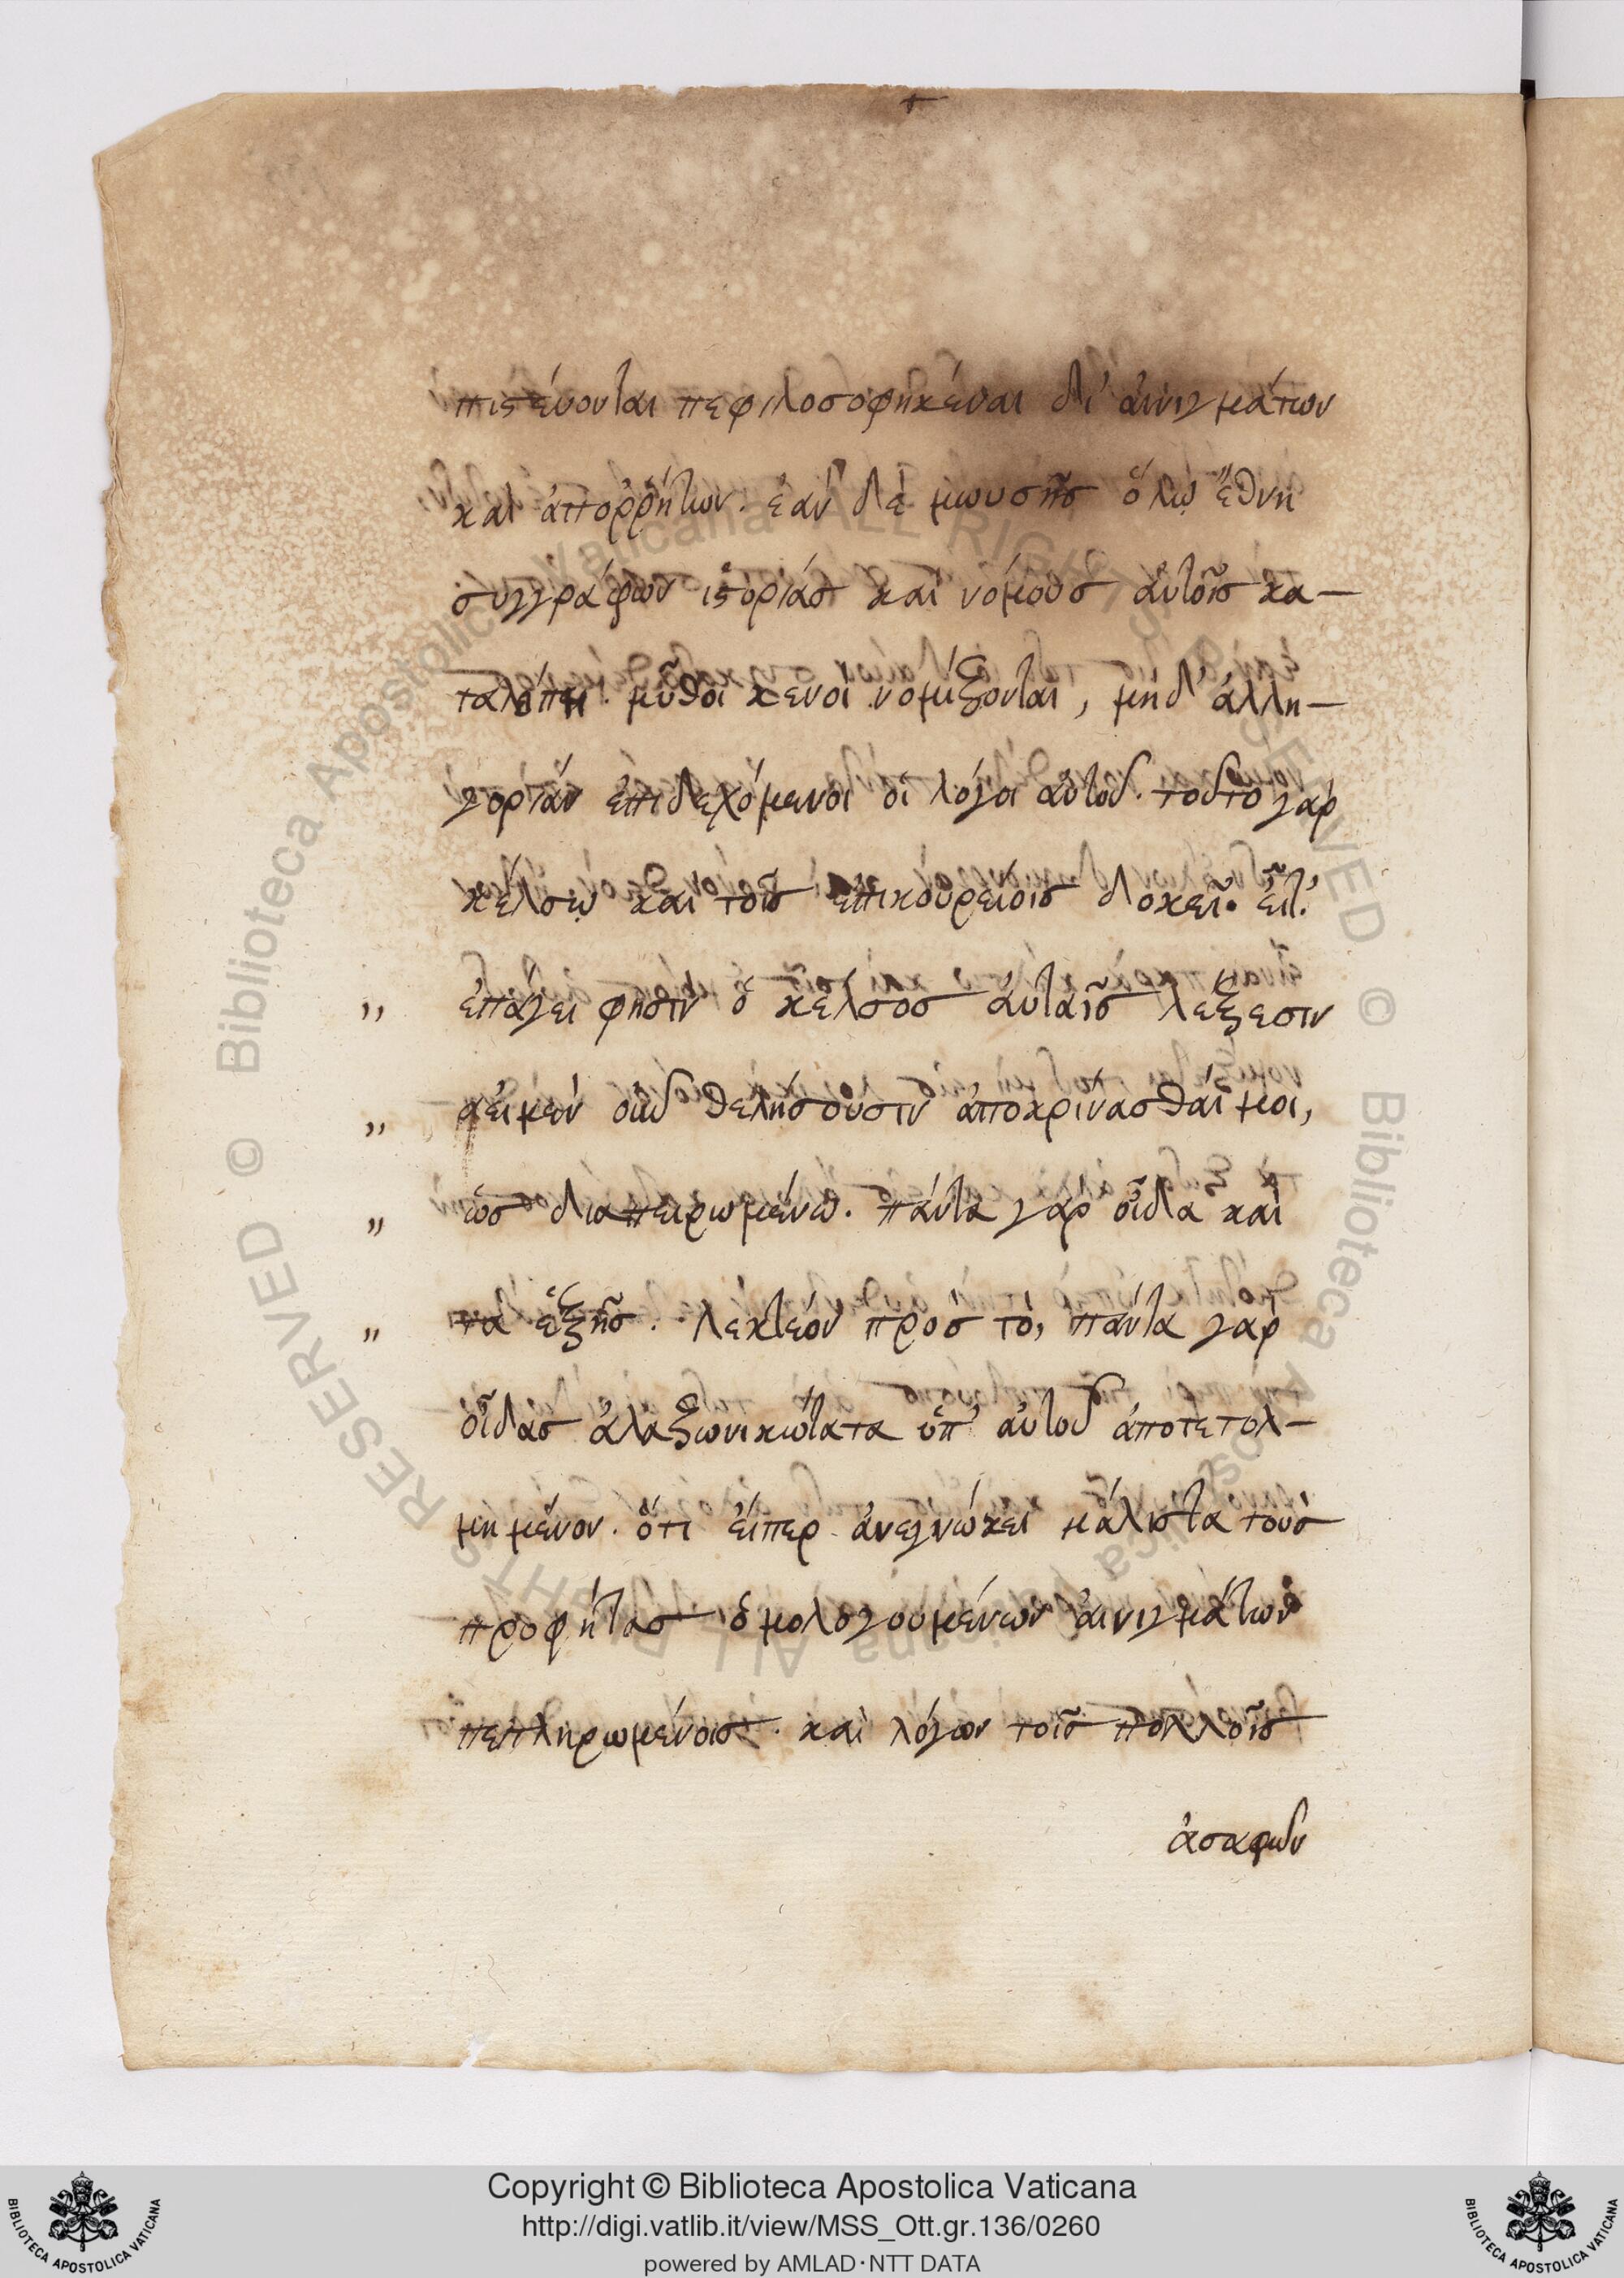 πιστεύονται πεφιλοσοφηκέναι δι' αἰνιγμάτων
καὶ ἀπορρήτων. ἐὰν δὲ μωυσῆς ὅλῳ ἔθνη
συγγράφων ἱστορίας καὶ νόμους αὐτοῖς κα–
ταλίπῃ. μῦθοι κενοὶ νομίζονται, μηδ' ἀλλη–
γορίαν ἐπιδεχόμενοι οἱ λόγοι αὐτοῦ. τοῦτο γὰρ
κέλσῳ καὶ τοῖς ἐπικουρείοις δοκεῖ. εἶτ'
„ ἐπάγει φησὶν ὁ κέλσος αὐταῖς λέξεσιν
„ αἰ μὲν οὖν θελήσουσιν ἀποκρίνασθαί μοι,
„ ὡς διαπειρωμένῳ. πάντα γὰρ οἶδα καὶ
„ τα ἑξῆς. λεκτέον πρὸς τὸ, πάντα γὰρ
οἶδας ἀλαζωνικώτατα ὑπ' αὐτοῦ ἀποτετολ–
μημένον. ὅτι εἴπερ ἀνεγνώκει μάλιστα τοὺς
προφήτας ὁμολογουμένων αἰνιγμάτων
πεπληρωμένοις. καὶ λόγων τοῖς πολλοῖς
ἀσαφῶν
Copyright © Biblioteca Apostolica Vaticana
http://digi.vatlib.it/view/MSS_Ott.gr.136/0260
powered by AMLAD·NTT DATA
BIBLIOTECA APOSTOLICA VATICANA
BIBLIOTECA APOSTOLICA VATICANA